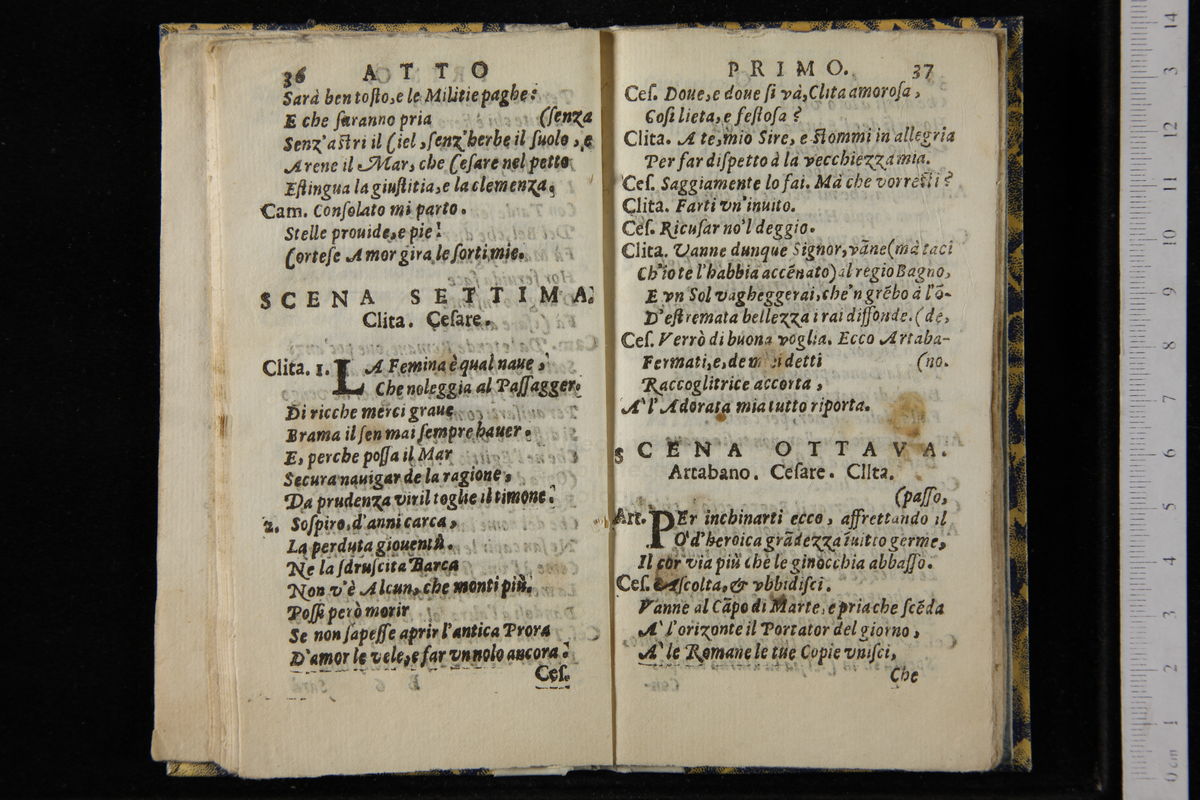 36 ATTO
Sarà ben tosto, e le Militie paghe:
E che saranno pria (senza
Senz'astri il Ciel, senz'herbe il suolo, e
Arene il Mar, che Cesare nel petto
Estingua la giustitia, e la clemenza.
Cam. Consolato mi parto.
Stelle prouide, e pie!
Cortese Amor gira le sorti mie.
SCENA SETTIMA.
Clita. Cesare.
Clita. 1. LA Femina è qual naue,
Che noleggia al Passagger.
Di ricche merci graue
Brama il sen mai sempre hauer.
E, perche possa il Mar
Secura nauigar de la ragione,
Da prudenza viril toglie il timone.
2. Sospiro, d'anni carca,
La perduta giouentù.
Ne la sdruscita Barca
Non v'è Alcun, che monti più.
Possi però morir
Se non sapesse aprir l'antica Prora
D'amor le vele, e far vn nolo ancora.
Ces.
PRIMO. 37
Ces. Doue, e doue si và, Clita amorosa,
Così lieta, e festosa?
Clita. A te, mio Sire, e stommi in allegria
Per far dispetto à la vecchiezza mia.
Ces. Saggiamente lo fai. Mà che vorresti?
Clita. Farti vn'inuito.
Ces. Ricusar no'l deggio.
Clita. Vanne dunque Signor, vãne (mà taci
Ch'io te l'habbia accẽnato) al regio Bagno,
E vn Sol vagheggerai, che'n grẽbo à l'õ-
D'estremata bellezza i rai diffonde. (de,
Ces. Verrò di buona voglia. Ecco Artaba-
Fermati, e, de detti (no.
Raccoglitrice accorta,
A' l'Adorata mia tutto riporta.
SCENA OTTAVA.
Artabano. Cesare. Clita.
(passo,
Art. PEr inchinarti ecco, affrettando il
O' d'heroica grãdezza inuitto germe,
Il cor via più che le ginocchia abbasso.
Ces. Ascolta, & vbbidisci.
Vanne al Cãpo di Marte, e pria che scẽda
A' l'orizonte il Portator del giorno,
A' le Romane le tue Copie vnisci,
Che